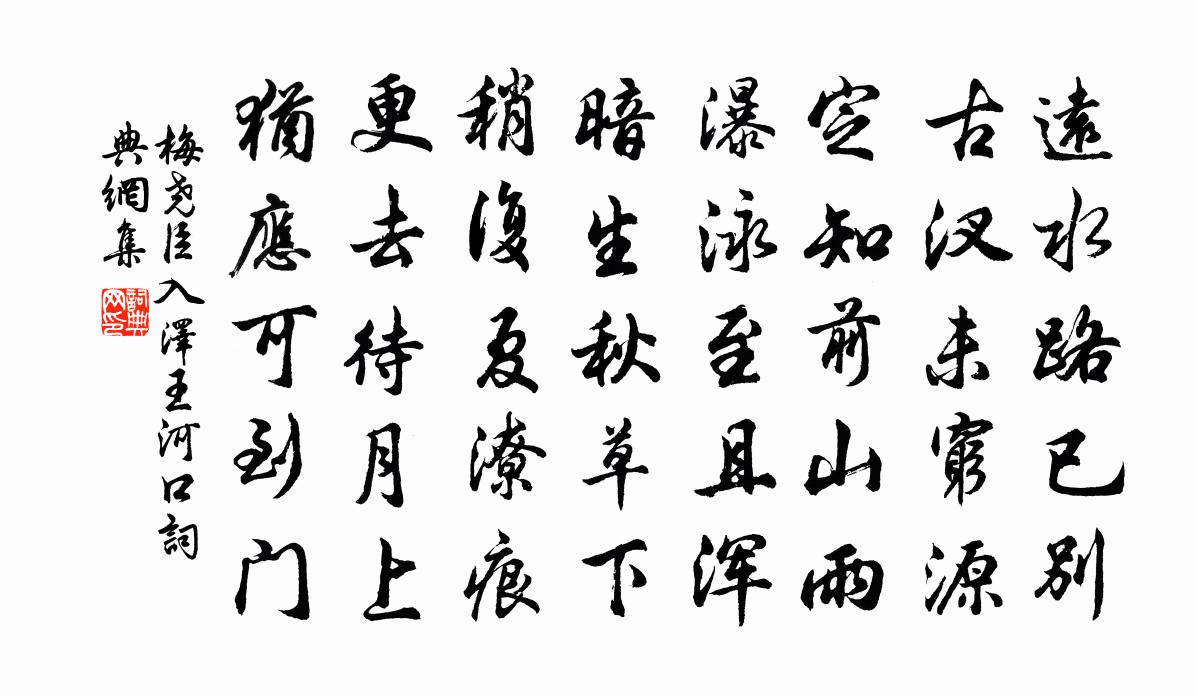 遠水路已別
古汊未窮源
定知前山雨
瀑泳至且浑
暗生秋草下
稍復夏潦痕
更去待月上
猶應可到门
梅尧臣入澤王河口詞
典網集
詞典
网印